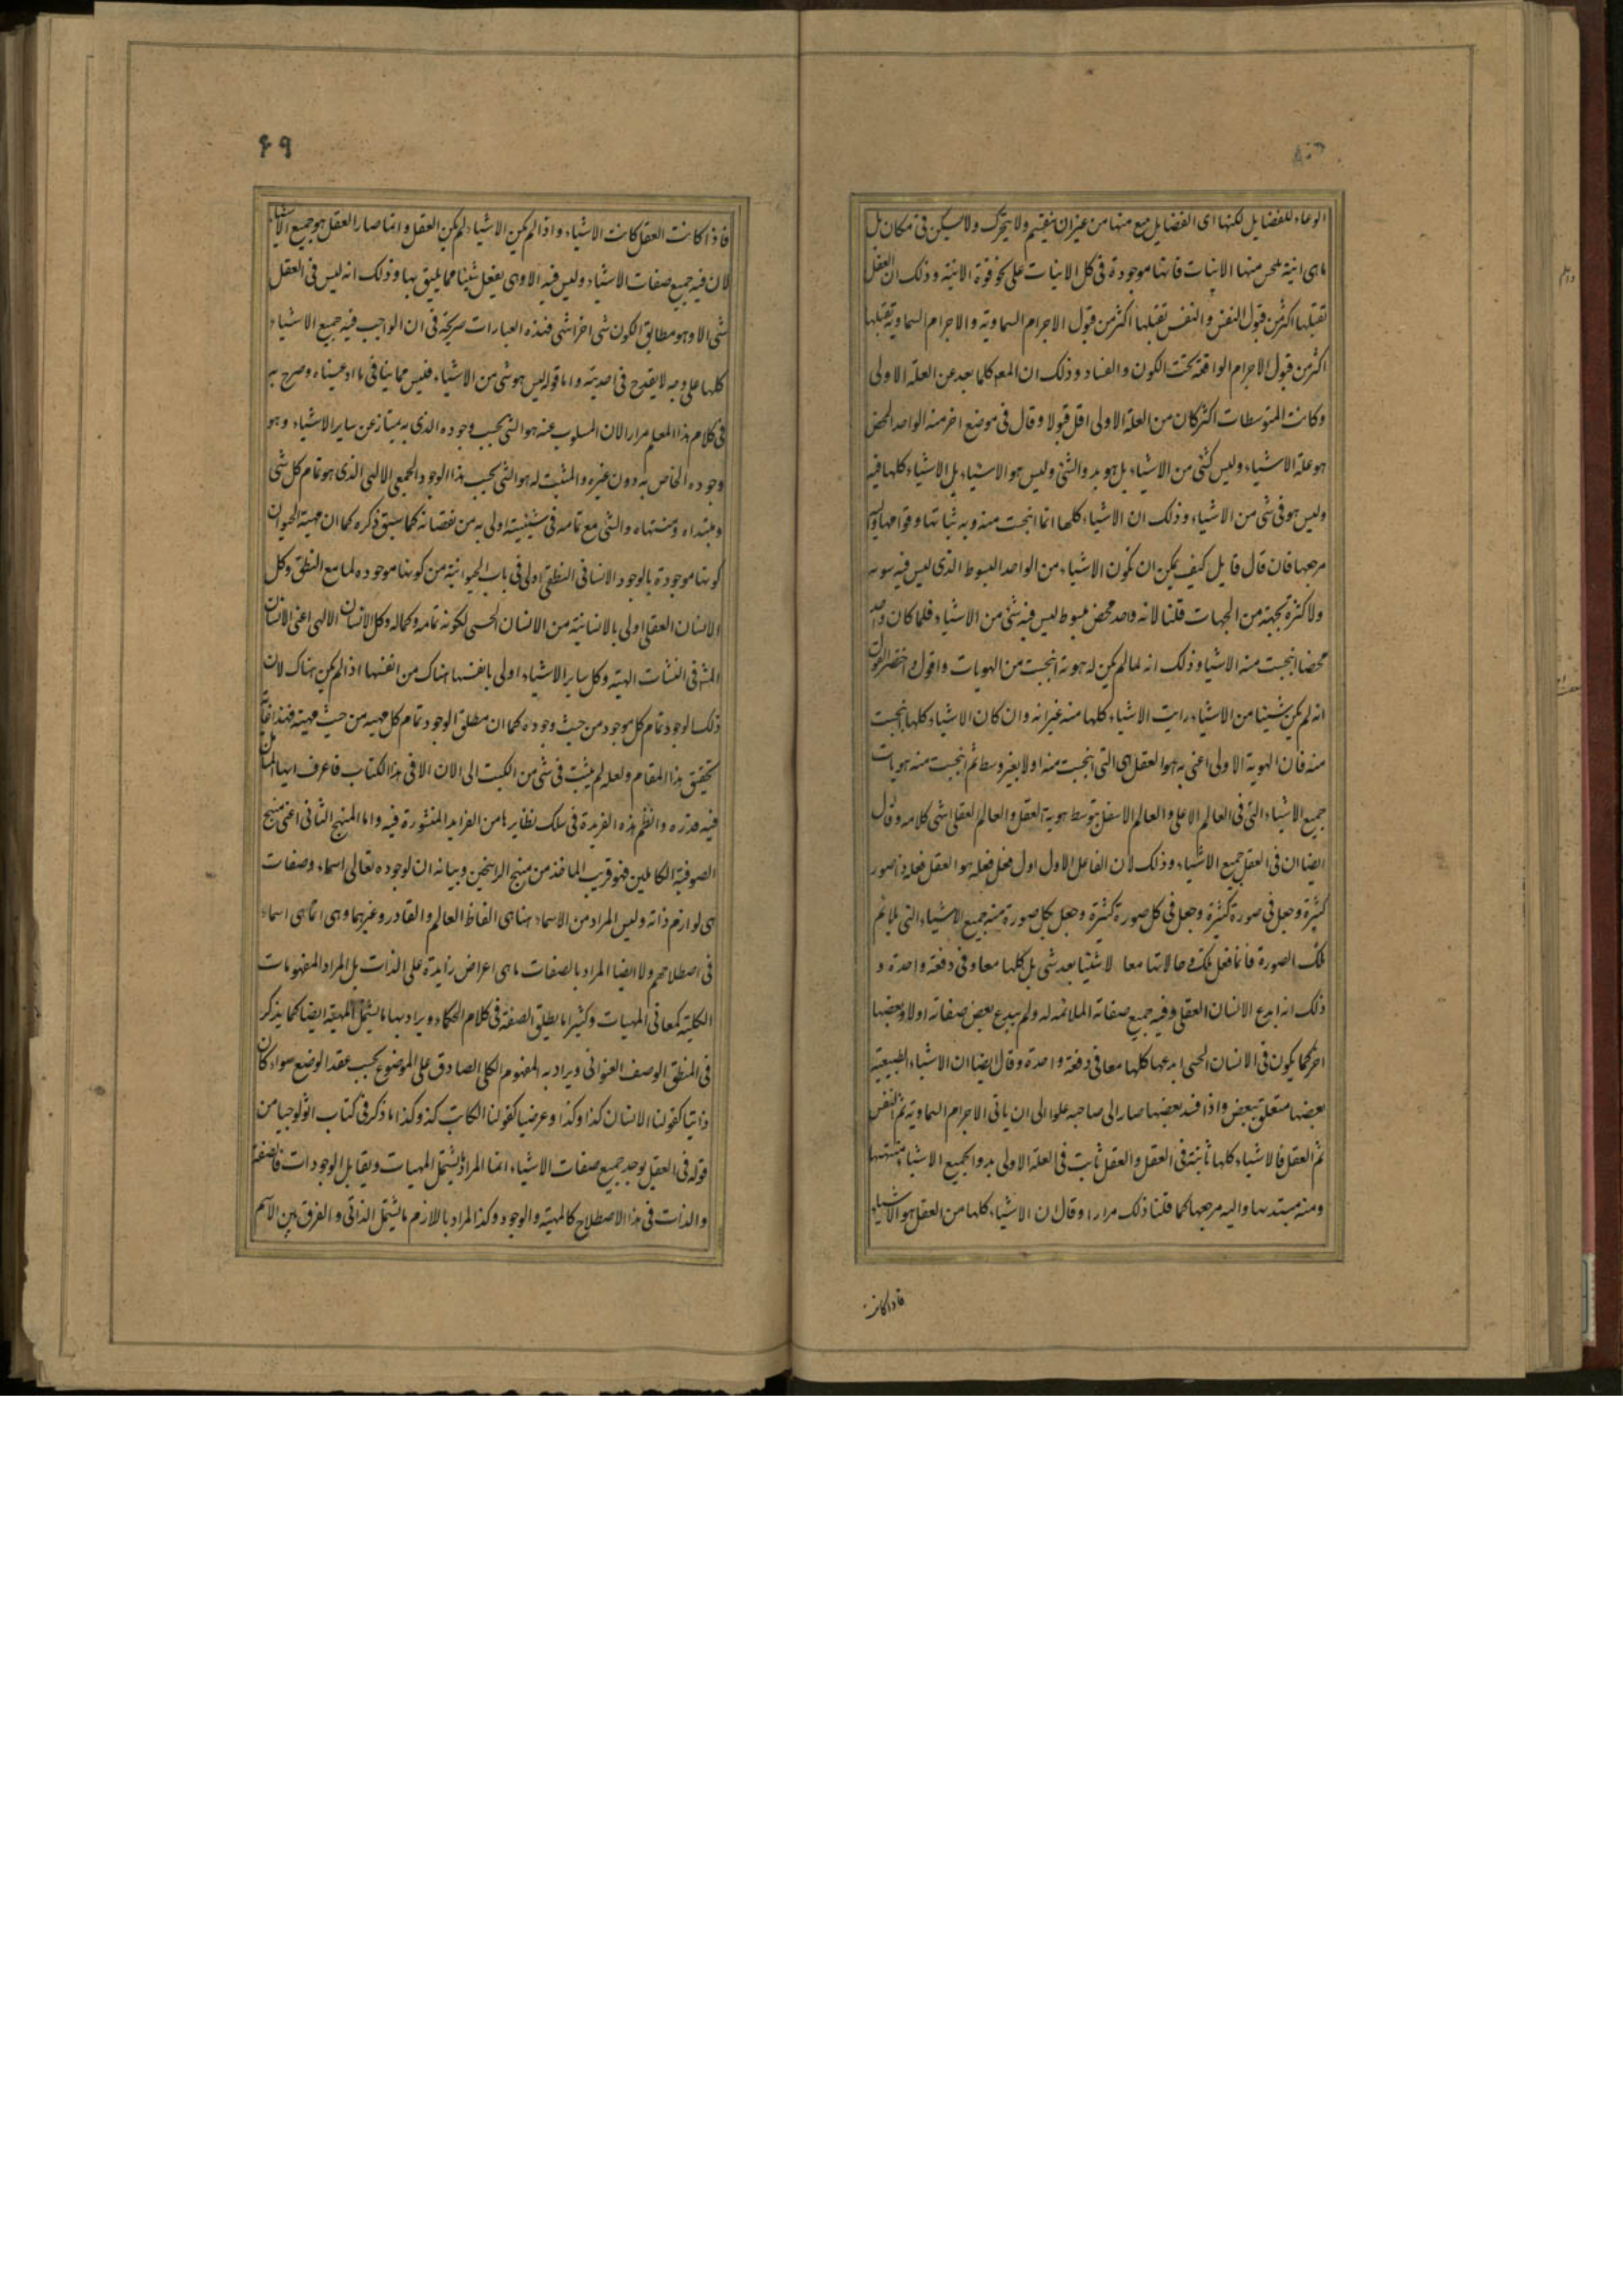 الوعاء للفضايل لكنها اى الفضايل تنبع منها من غير ان ينقسم ولا يتحرك ولا يسكن فى مكان بل
ما هى انية ينبجس منها الانيات فانها موجودة فى كل الانيات على نحو قوة الانية وذلك ان العقل
تقبلها اكثر من قبول النفس والنفس تقبلها اكثر من قبول الاجرام السماوية والاجرام السماوية تقبلها
اكثر من قبول الاجرام الواقعة تحت الكون والفساد وذلك ان المعم كلما بعد عن العلة الاولى
وكانت المتوسطات اكثر كان من العلة الاولى اقل قبولا وقال فى موضع اخر منه الواحد المحض
هو علة الاشياء وليس كشى من الاشياء بل هو بدو الشى وليس هو الاشياء بل الاشياء كلها فيه
وليس هو فى شى من الاشياء وذلك ان الاشياء كلها انما انبجست منه وبه ثباتها وقوامها واليه
مرجعها فان قال قايل كيف يمكن ان يكون الاشياء من الواحد المبسوط الذى ليس فيه سويه
ولا كثرة بجهة من الجهات قلنا لانه واحد محض مبسوط ليس فيه شى من الاشياء فلما كان واحد
محضا انبجست منه الاشيا وذلك انه لما لم يكن له هوية انبجست من الهويات واقول واختصر القول
انه لم يكن شيئا من الاشياء رايت الاشياء كلها منه غير انه وان كان الاشياء كلها انبجست
منه فان الهوية الاولى اعنى به هو العقل هى التى انبجست منه اولا بغير وسط ثم انبجست منه هويات
جميع الاشياء التى فى العالم الاعلى والعالم الاسفل بتوسط هوية العقل والعالم العقلى انتهى كلامه وقال
ايضا ان فى العقل جميع الاشياء وذلك لان الفاعل الاول اول فعل فعله هو العقل فعله ذا صور
كثيرة وجعل فى صورة كثيرة وجعل فى كل صورة كثيرة وجعل بكل صورة منه جميع الاشياء التى يلايم
تلك الصورة فانما فعل تلك وحالاتها معا لا شيئا بعد شى بل كلها معا وفى دفعة واحدة و
ذلك انه ابدع الانسان العقلى وفيه جميع صفاته الملائمه له ولم يبدع بعض صفاته اولا وبعضها
اخر كما يكون فى الانسان الحسى ابدعها كلها معا فى دفعة واحدة وقال ايضا ان الاشياء الطبيعية
بعضها متعلق ببعض واذا فسد بعضها صار الى صاحبه علوا الى ان ياتى الاجرام السماوية ثم النفس
ثم العقل فالاشياء كلها ثابتة فى العقل والعقل ثابت فى العلة الاولى بدو الجميع الاشياء ومنتهها
ومنه مبتدءها واليه مرجعها كما قلنا ذلك مرارا وقال ان الاشياء كلها من العقل هو الاشياء
فاذا كانت
۶۹
فاذا كانت العقل كانت الاشياء واذا لم يكن الاشياء لم يكن العقل وانما صار العقل هو جميع الاشياء
لان فيه جميع صفات الاشياء وليس فيه الا وهى يفعل شيئا مما يليق بها وذلك انه ليس فى العقل
شى الا وهو مطابق لكون شى اخر انتهى فهذه العبارات صريحة فى ان الواجب فيه جميع الاشياء
كلها على وجه لا يقدح فى احديته واما قوله ليس هو شى من الاشياء فليس مما ينافى ما ادعيناه وصرح به
فى كلام هذا المعلم مرارا لان المسلوب عنه هو الشى بحسب وجوده الذى به يمتاز عن ساير الاشياء وهو
وجوده الخاص به دون غيره والمثبت له هو الشى بحسب هذا الوجود الجمعى الالهى الذى هو تمام كل شى
ومبتداه ومنتهاه والشى مع تمامه فى شيئيته اولى به من نقصانه كما سبق ذكره كما ان مهية الحيوان
كونها موجودة بالوجود الانسانى النطقى اولى فى باب الحيوانية من كونها موجوده لما مع النطق وكل
الانسان العقلى اولى بالانسانية من الانسان الحسى لكونه تمامه وكماله وكل الانسان الالهى اعنى الانسان
فى النشات الهية وكل ساير الاشياء اولى بانفسها هناك من انفسها اذا لم يكن هناك لان
ذلك الوجود تمام كل موجود من حيث وجوده كما ان مطلق الوجود تمام كل مهية من حيث مهية فهذا غاية
تحقيق هذا المقام ولعله لم يثبت فى شى من الكتب الى الان الا فى هذا الكتاب فاعرف ايها المتامل
فيه قدره وانظم هذه الفريدة فى سلك نظايرها من الفرايد المنثورة فيه واما المنهج الثانى اعنى منهج
الصوفية الكاملين فهو قريب الماخذ من منهج الراسخين وبيانه ان لوجوده تعالى اسماء وصفات
هى لوازم ذاته وليس المراد من الاسماء هنا هى الفاظ العالم والقادر وغيرهما وهى انما هى اسماء
فى اصطلاحهم ولا ايضا المراد بالصفات ما هى اعراض زايدة على الذات بل المراد المفهومات
الكلية كمعانى المهيات وكثيرا ما يطلق الصفة فى كلام الحكماء ويراد بها ما يشمل المهية ايضا كما يذكر
فى المنطق الوصف العنوانى ويراد به المفهوم الكلى الصادق على الموضوع بحسب عقد الوضع سواء كان
ذاتيا كقولنا الانسان كذا وكذا وعرضيا كقولنا الكاتب كذا وكذا ما ذكر فى كتاب اثولوجيا من
قوله فى العقل يوجد جميع صفات الاشياء انما المراد ما يشتمل المهيات ويقابل الوجودات فالصفة
والذات فى هذا الاصطلاح كالمهية والوجود وكذا المراد باللازم ما يشتمل الذاتى والفرق بين الاسم